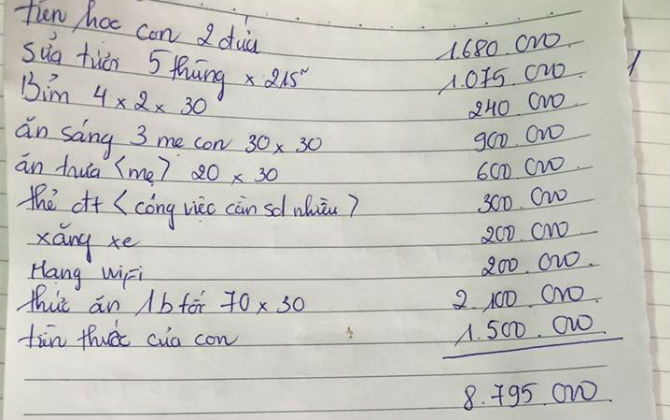 tiền học con 2 đứa 1.680.000
sữa tươi 5 thùng x 215ⁿ 1.075.000
Bỉm 4 x 2 x 30 240.000
ăn sáng 3 mẹ con 30 x 30 900.000
ăn trưa (mẹ) 20 x 30 600.000
thẻ đt (công việc cần sd nhiều) 300.000
xăng xe 200.000
Mạng wifi 200.000
thức ăn 1b tối 70 x 30 2.100.000
tiền thuốc của con 1.500.000
8.795.000